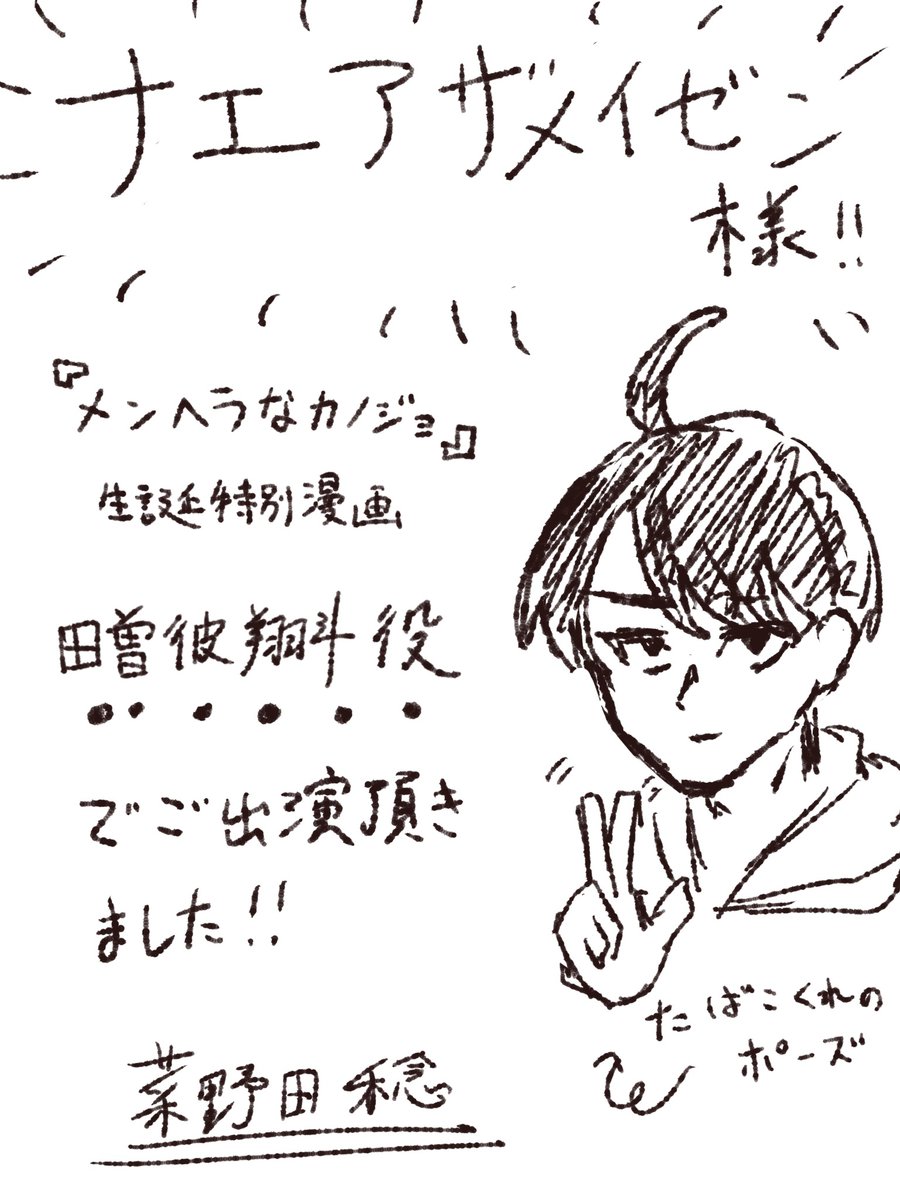 ナエアザメイゼン
様!!
『メンヘラなカノジョ』
生誕特別漫画
田曽彼翔斗役
でご出演頂き
ました!!
たばこくれの
ポーズ
菜野田稔